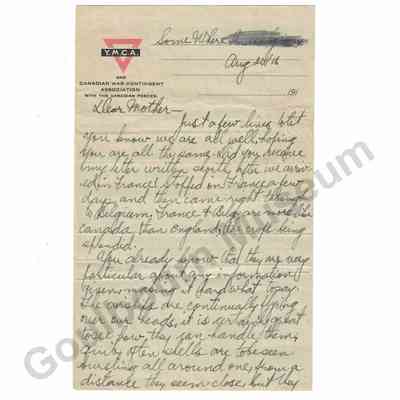 Y.M.C.A.
AND
CANADIAN WAR CONTINGENT
ASSOCIATION
WITH THE CANADIAN FORCES.
Some Where
Aug 1916
191
Dear Mother—
Just a few lines to let
you know we are all well, hoping
you are all the same. did you receive
my letter written after we arriv
ed in France? Stopped in France a few
days and then came right
to Belgium, France & Belg. are more like
Canada than England, the crops being
splendid.
You already know that they are very
particular about any information
given making it hard what to say.
The airships are continually flying
over our heads, it is certainly great
to see how they can handle them,
quite often shells are to be seen
bursting all around one, from a
distance they seem close but they
Gouldbourn Museum